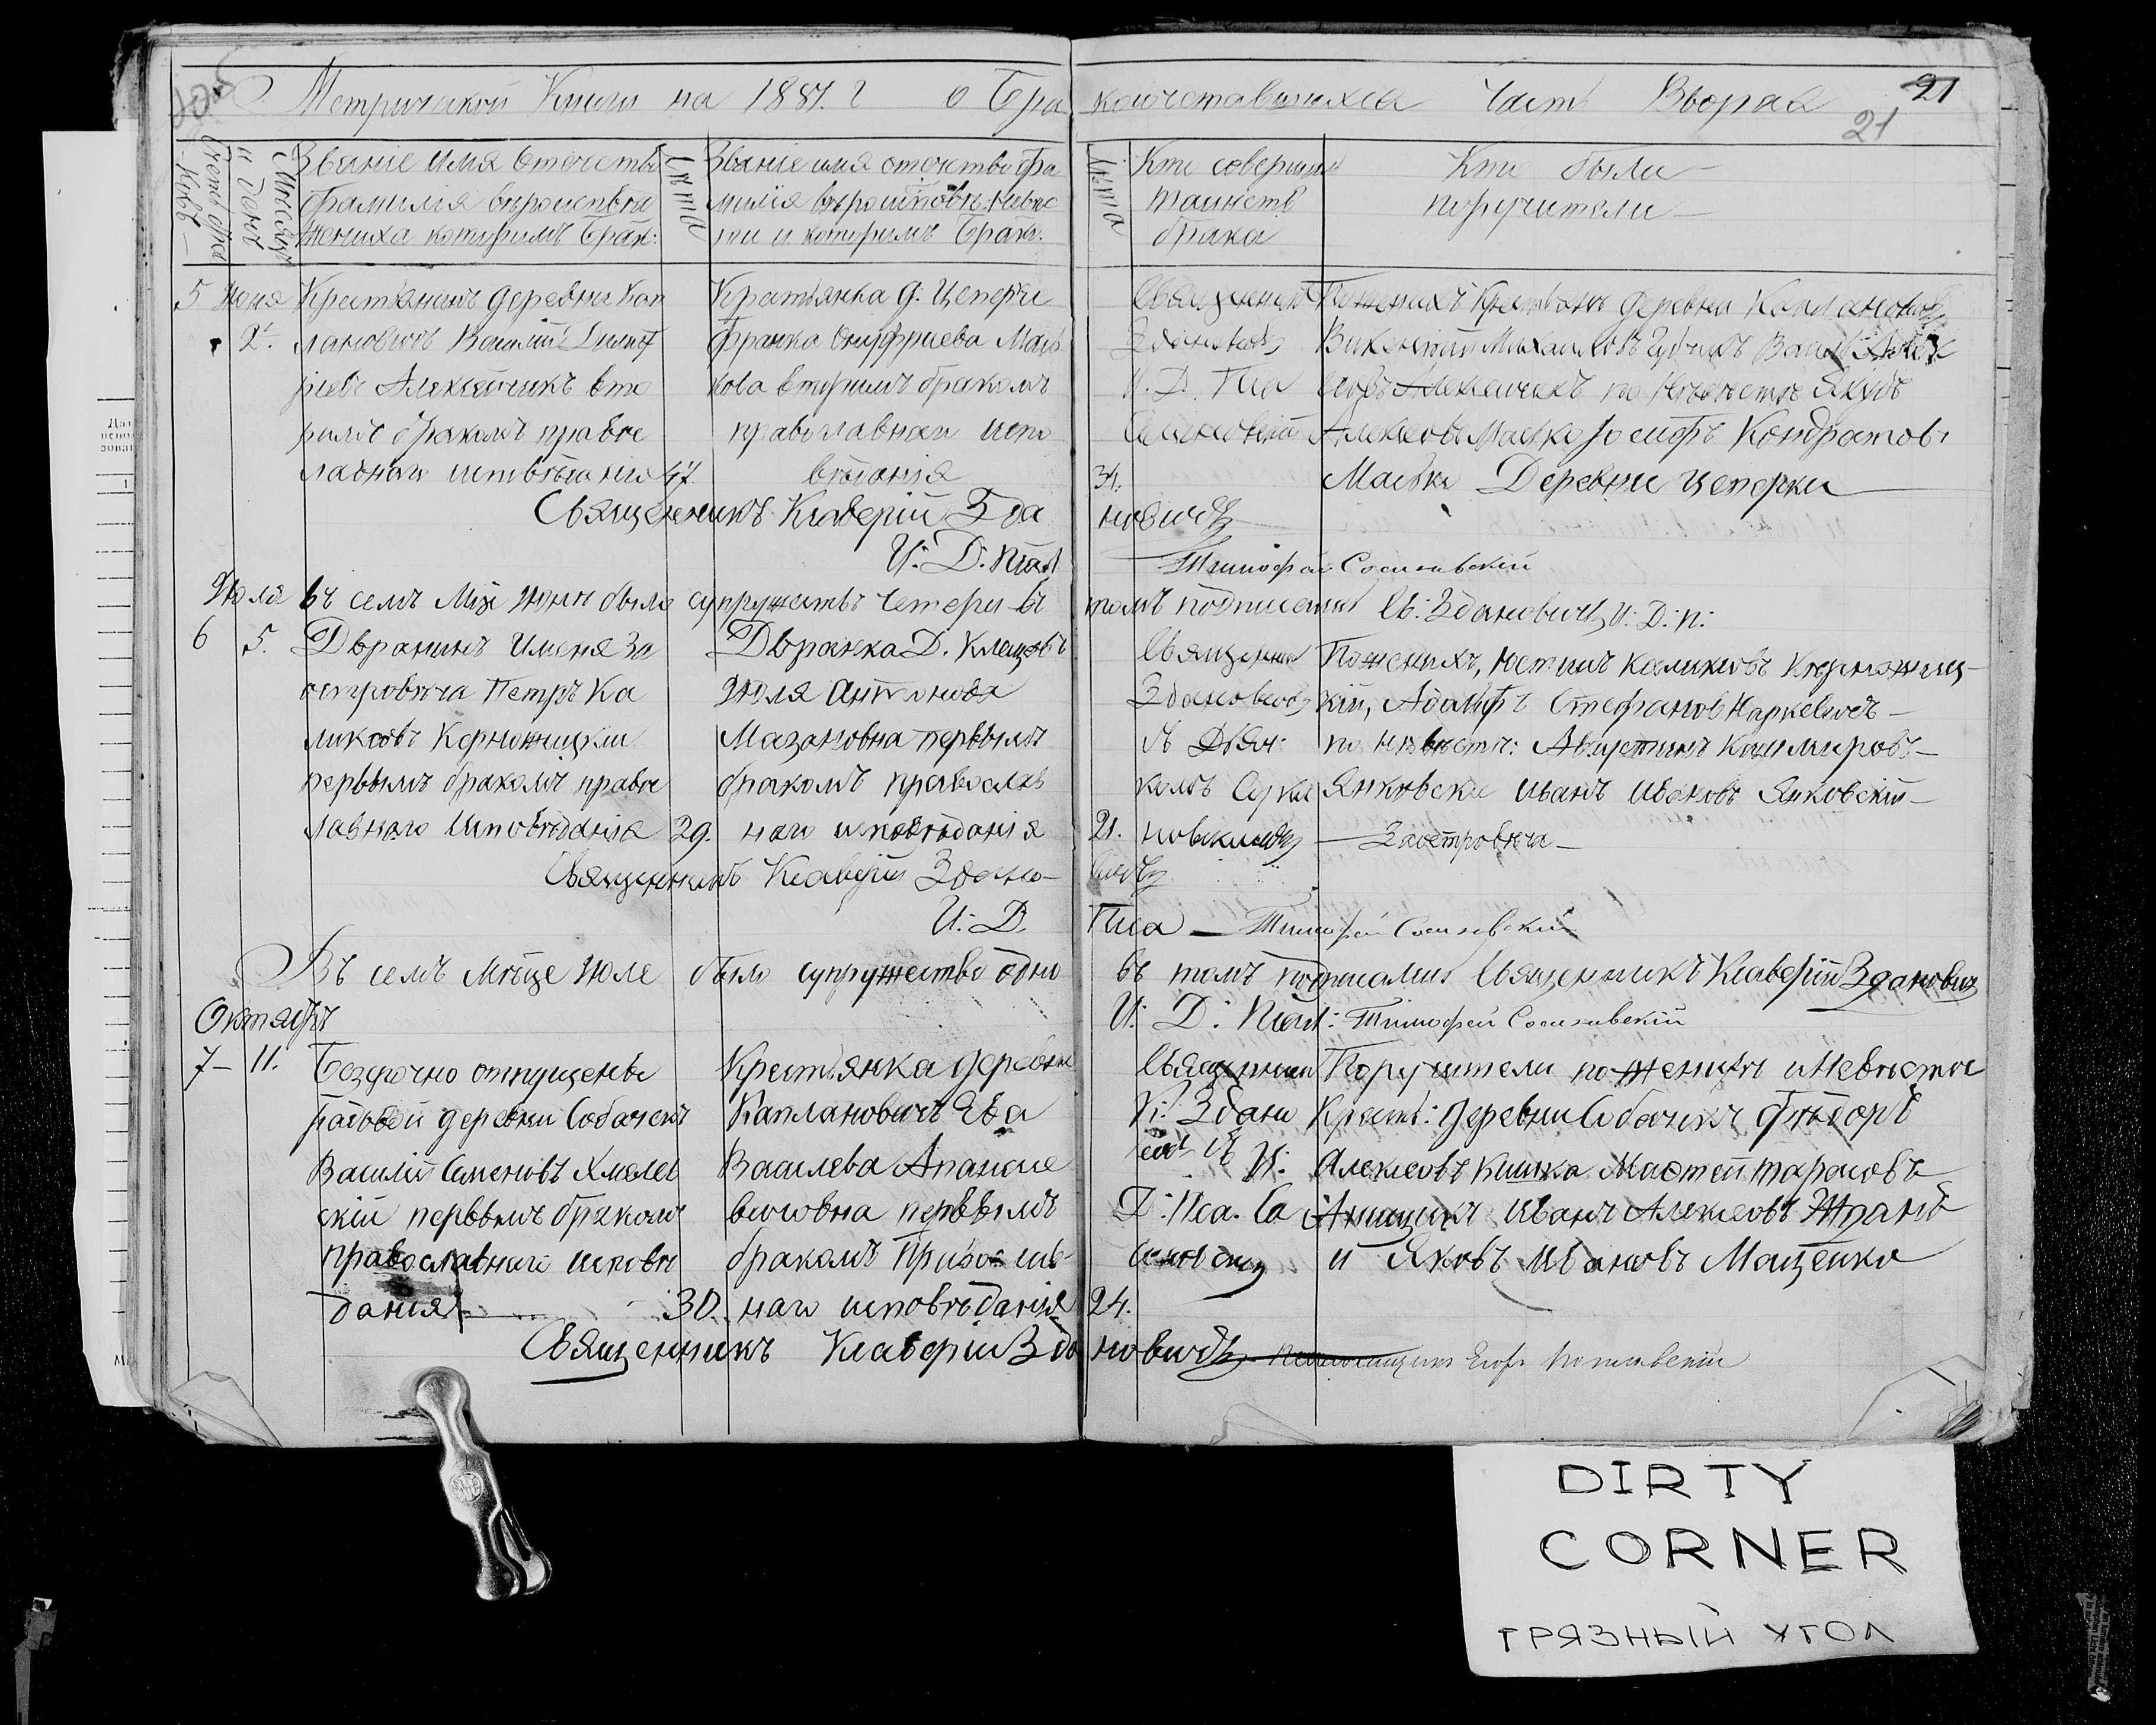 Метрической Книги на 1887. г о Бра кочетавшихся Часть Вторая 21
21
Счетъ бра ковъ
Месяцъ и день
Званіе имя отечество
фамилія вероисповед
жениха которымъ Брак:
Лета
Званіе имя отечство фа
милія вероисповед: Невес
ты и которымъ Брак.
Лета
Кто совершал
таинств
брака
Кто были
поручители
5 Июня Крестянинъ деревни Кап
2. лановичъ Василій Димит
ріевъ Алексейчикъ вто
рымъ бракомъ правос
лавнаго исповеданія 47.
Крестьянка д. Цеперки
Франка Онуффриева Мась
кова вторымъ бракомъ
православнаго испо
веданія 34.
Священник
Здановичъ
И. Д. Пса
Сосиновскій
По женихъ Крестьянъ деревни Каплановичъ
Викентий Михаиловъ
Алексейчикъ по Невесте Якубъ
Алексеовъ Масько Іосифъ Кондратовъ
Масько Деревни Цеперки
Священникъ Ксаверій Зда новичъ
И: Д: Псал Тимофей Сосиновскій
Июля въ семъ Мце Июне было супружествъ четыри въ томъ подписались Св: Здановичъ И: Д: п:
6 5. Дваранинъ Именя За
островеча Петръ Ка
ликсовъ Корножицкий
первымъ бракомъ правос
лавнаго Исповеданія 29.
Дваранка Д. Клецовъ
Юля Антонова
Мазановна первымъ
бракомъ православ
наго исповеданія 21.
Священник
Здановичъ
съ Дьяч:
комъ
По женихъ, Юстинъ Каликсовъ Корножиц-
кій, Адамфъ Стефановъ Наркевичъ
по невесте: Августинъ Казимировъ
Янковски Иванъ Ивановъ Янковскій
Заостровеча
Священникъ Ксаверій Здано- вичъ
И: Д. Пса Тимофей Сосиновскій
Въ семъ Мѣце Июле было супружество одно въ томъ подписались Священникъ Ксаверій Здановичъ
И: Д: Псал: Тимофей Сосиновскій
Октябрь
7 - 11. Безсрочно отпущены
рядовой деревни Собачекъ
Василій Семеновъ Хмелев
скій первымъ бракомъ
православнаго испове
данія 30.
Крестьянка деревни
Каплановичъ Ева
Василева Апанасе
вичовна первымъ
бракомъ Православ-
наго исповеданія 24.
Священник
К: Здано
вичъ И:
Д: Пса. Со
синовскій
Поручители по женихе и Невесте
Крест: деревни Собачикъ Фёдоръ
Алексеовъ Кишка Мастей Тарасовъ
Иванъ Алексеовъ
и Яковъ Ивановъ Маценко
Священникъ Ксаверій Зда новичъ Егоръ
DIRTY
CORNER
ГРЯЗНЫЙ УГОЛ